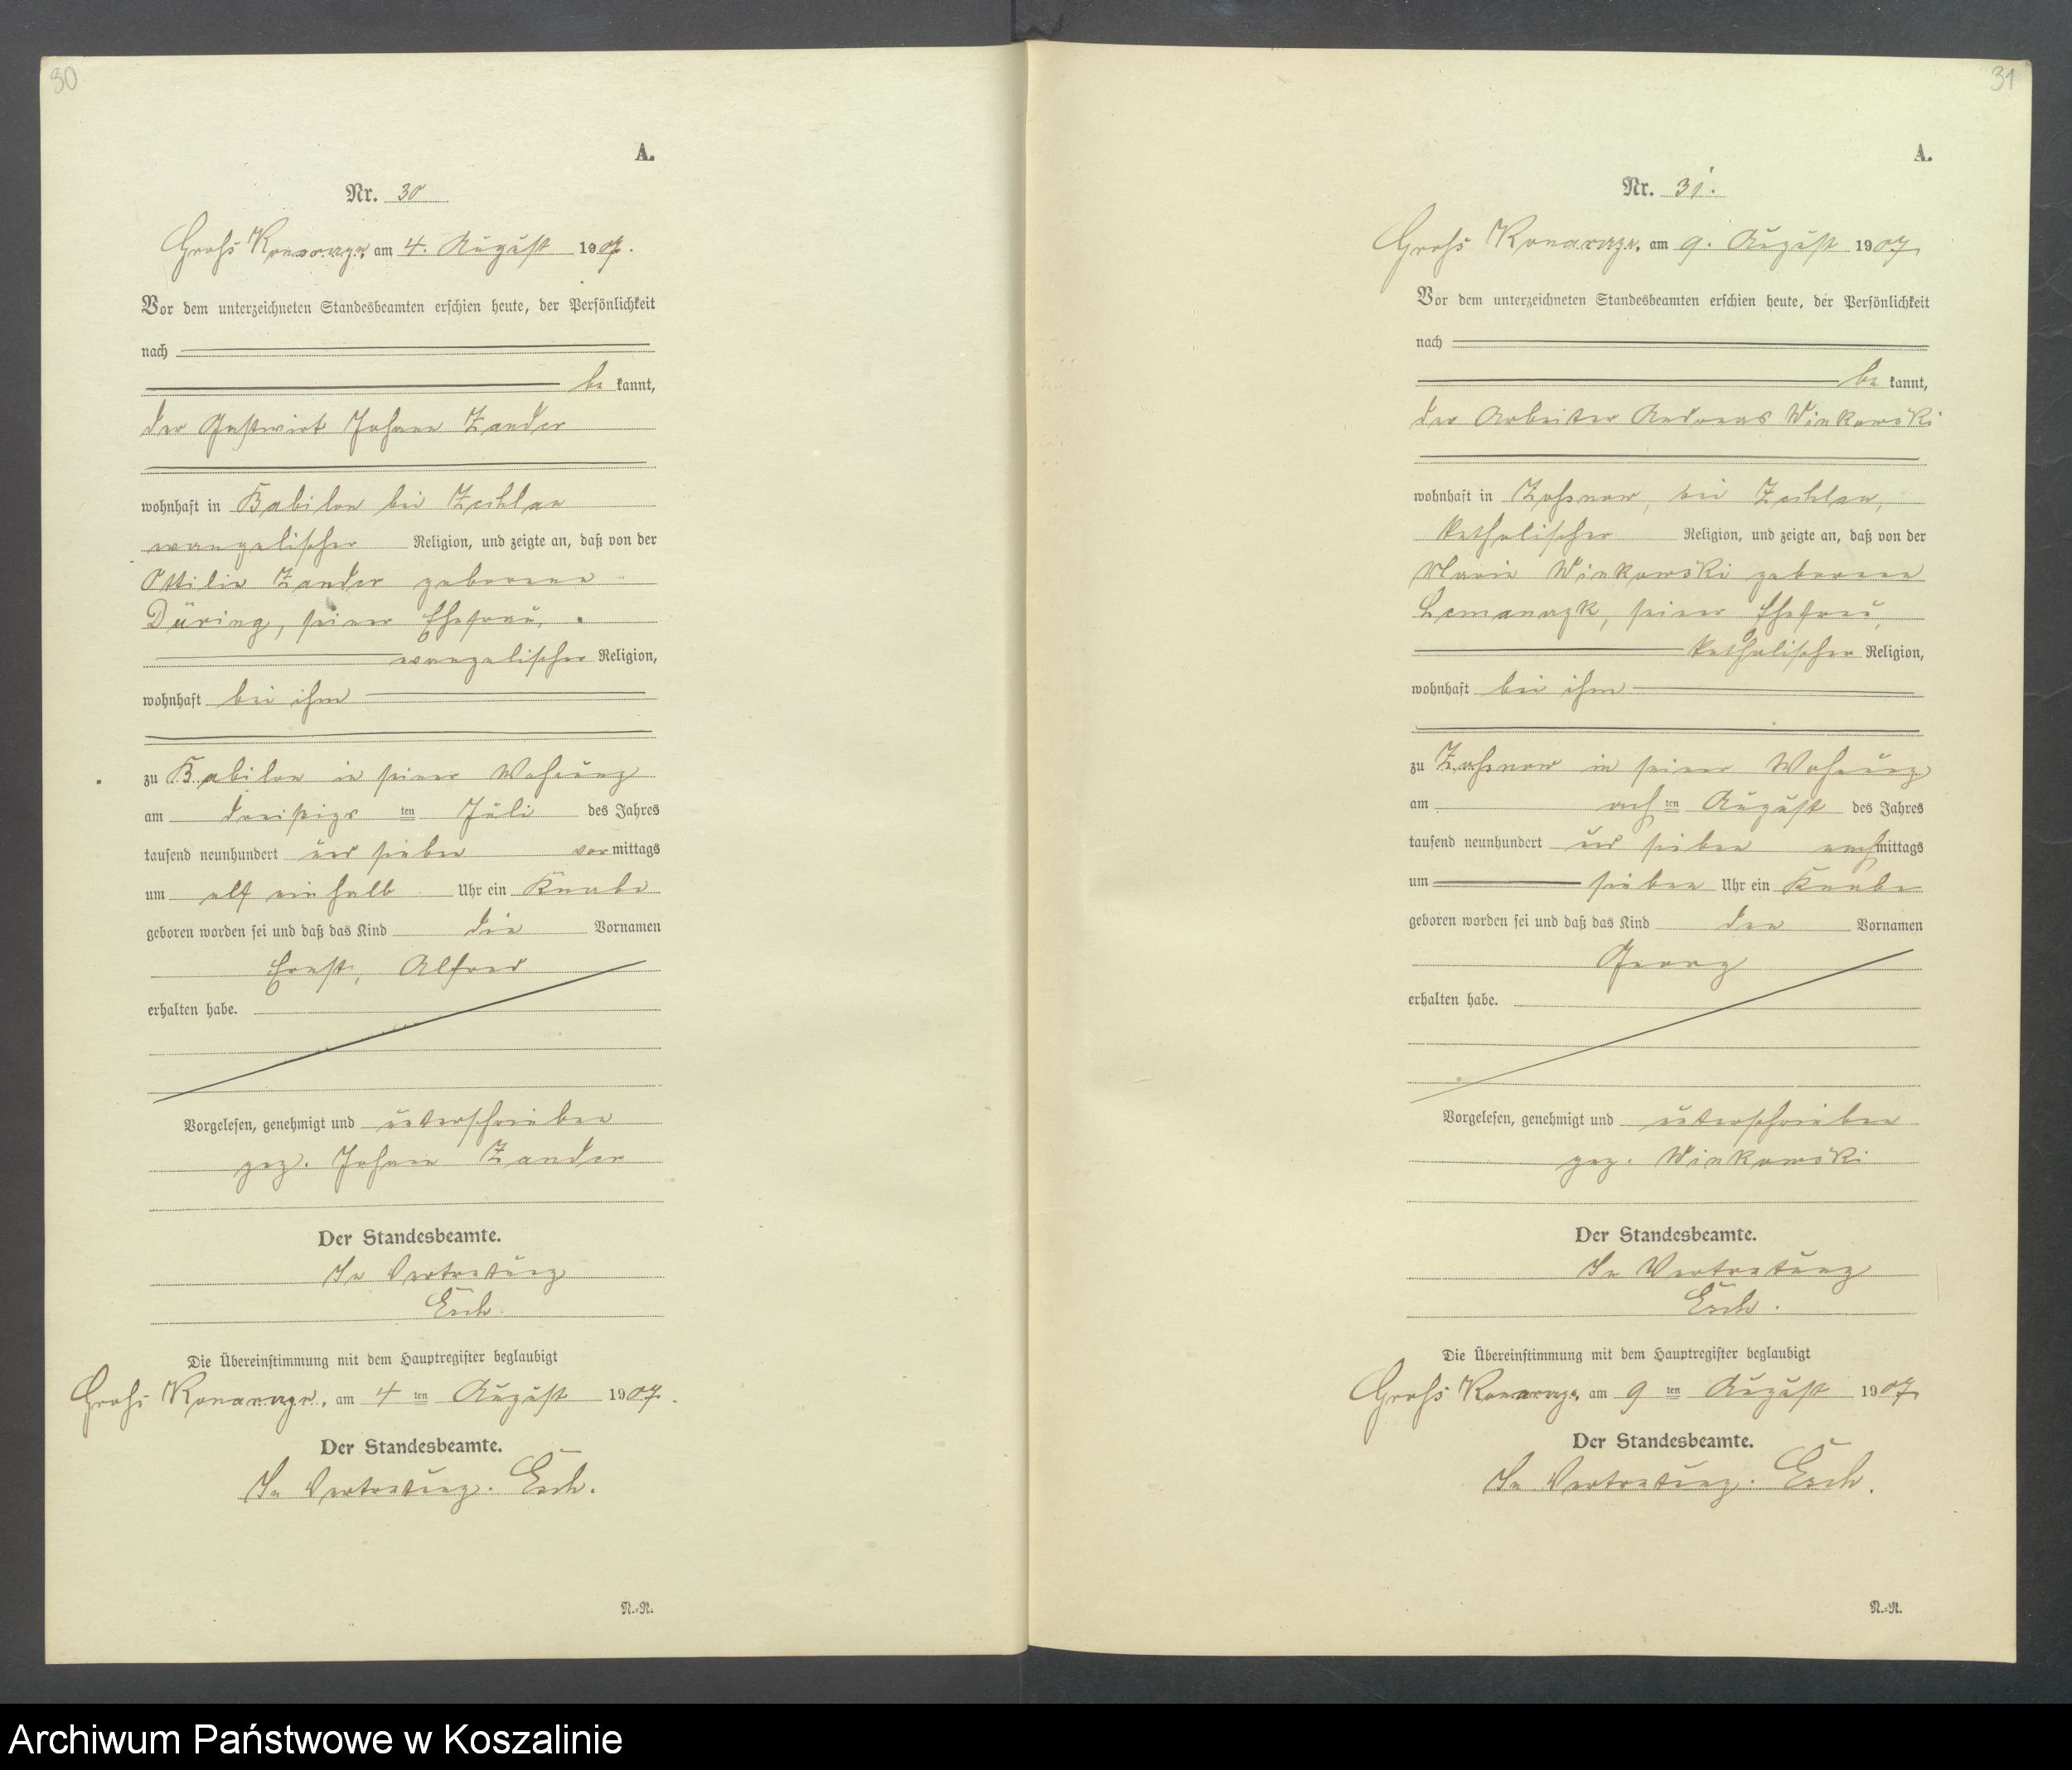 30
A.
Nr. 30
Groß Konarczyn, am 4. August 1907.
Vor dem unterzeichneten Standesbeamten erschien heute, der Persönlichkeit
nach
be kannt,
der Gastwirt Johann Zander
wohnhaft in Babilon bei Zechlau
evangelischer Religion, und zeigte an, daß von der
Ottilie Zander geborene
Düring, seiner Ehefrau,
evangelischer Religion,
wohnhaft bei ihm
zu Babilon in seiner Wohnung
am dreißigs ten Juli des Jahres
tausend neunhundert und sieben vormittags
um elf ein halb Uhr ein Knabe
geboren worden sei und daß das Kind die Vornamen
Ernst, Alfred
erhalten habe.
Vorgelesen, genehmigt und unterschrieben
gez. Johann Zander
Der Standesbeamte.
In Vertretung
Esch.
Die Übereinstimmung mit dem Hauptregister beglaubigt
Groß Konarczyn, am 4 ten August 1907.
Der Standesbeamte.
In Vertretung. Esch.
N.-R.
31
A.
Nr. 31.
Groß Konarczyn, am 9. August 1907
Vor dem unterzeichneten Standesbeamten erschien heute, der Persönlichkeit
nach
be kannt,
der Arbeiter Andreas Winkowski
wohnhaft in Zoßnow, bei Zechlau,
katholischer Religion, und zeigte an, daß von der
Marie Winkowski geborene
Lemanczk, seiner Ehefrau,
katholischer Religion,
wohnhaft bei ihm
zu Zoßnow in seiner Wohnung
am ach ten August des Jahres
tausend neunhundert und sieben nachmittags
um sieben Uhr ein Knabe
geboren worden sei und daß das Kind den Vornamen
Georg
erhalten habe.
Vorgelesen, genehmigt und unterschrieben
gez. Winkowski
Der Standesbeamte.
In Vertretung
Esch.
Die Übereinstimmung mit dem Hauptregister beglaubigt
Groß Konarczyn, am 9 ten August 1907
Der Standesbeamte.
In Vertretung. Esch.
N.-R.
Archiwum Państwowe w Koszalinie